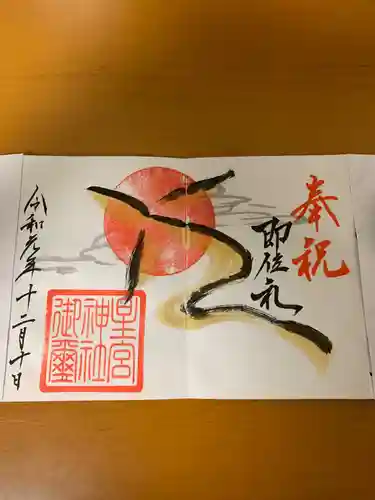 奉祝
即位礼
星宮
神社
御璽
令和元年十二月十日